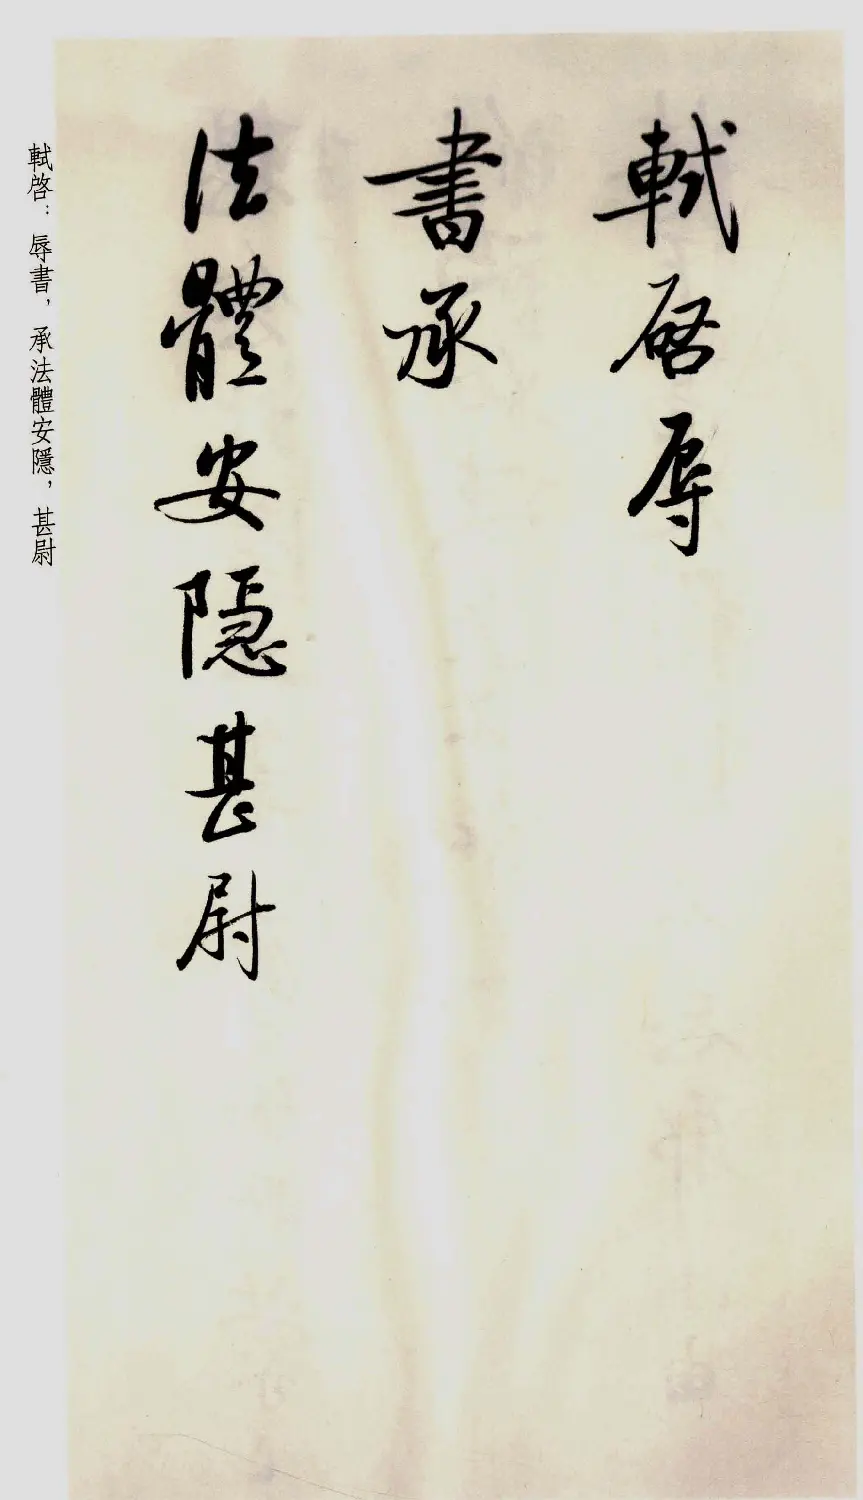 軾啓辱
書承
法體安隱甚尉
軾啓：辱書，承法體安隱，甚尉